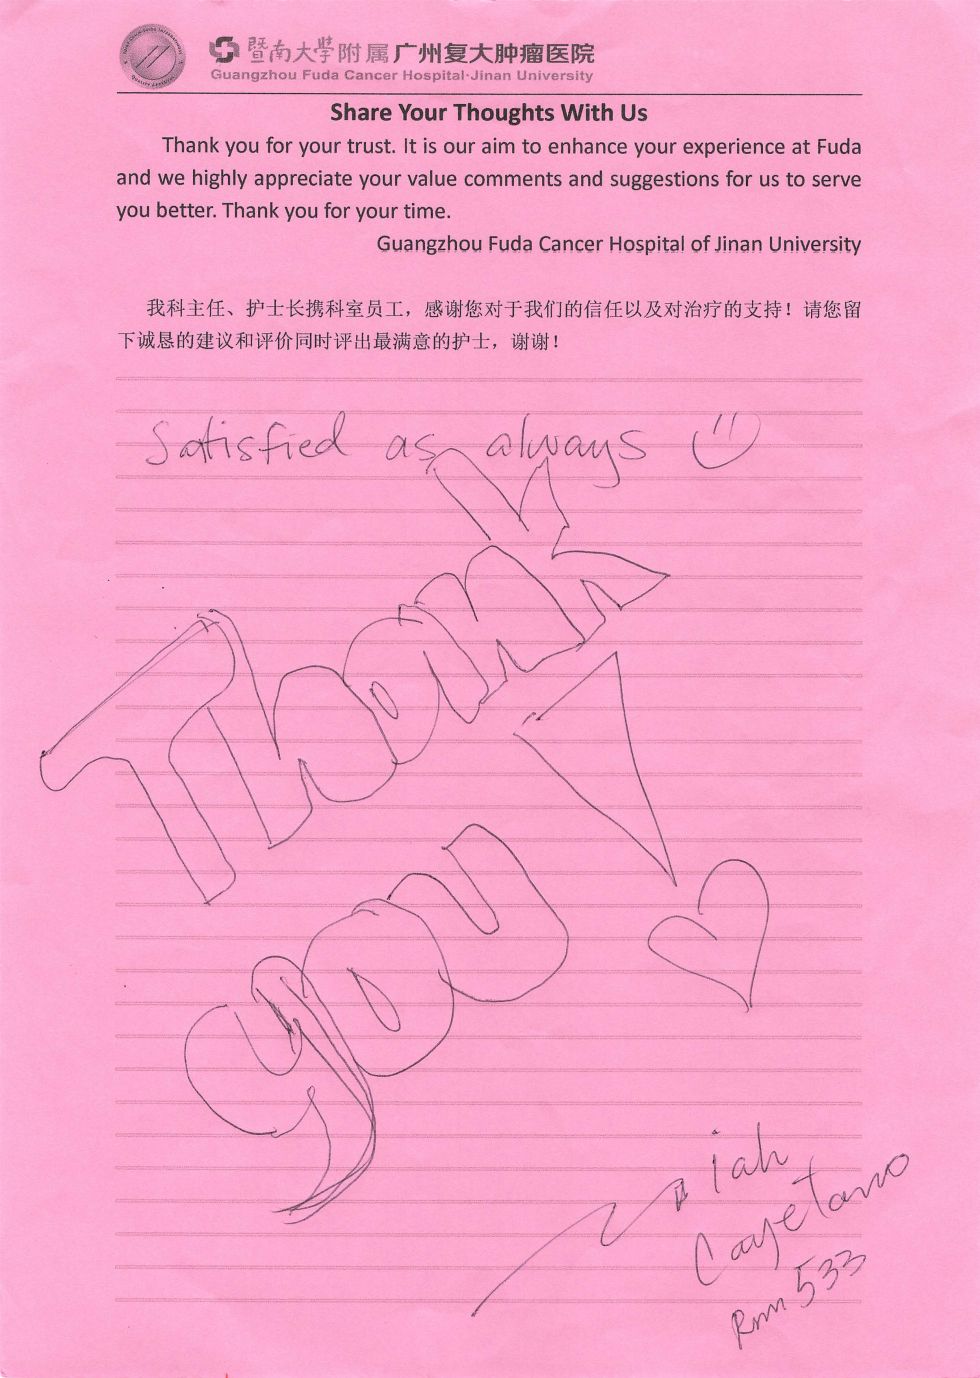 暨南大学附属广州复大肿瘤医院
Guangzhou Fuda Cancer Hospital·Jinan University
Share Your Thoughts With Us
Thank you for your trust. It is our aim to enhance your experience at Fuda
and we highly appreciate your value comments and suggestions for us to serve
you better. Thank you for your time.
Guangzhou Fuda Cancer Hospital of Jinan University
我科主任、护士长携科室员工，感谢您对于我们的信任以及对治疗的支持！请您留
下诚恳的建议和评价同时评出最满意的护士，谢谢！
Satisfied as always
Thank
you
Cayetano
Rmm 533